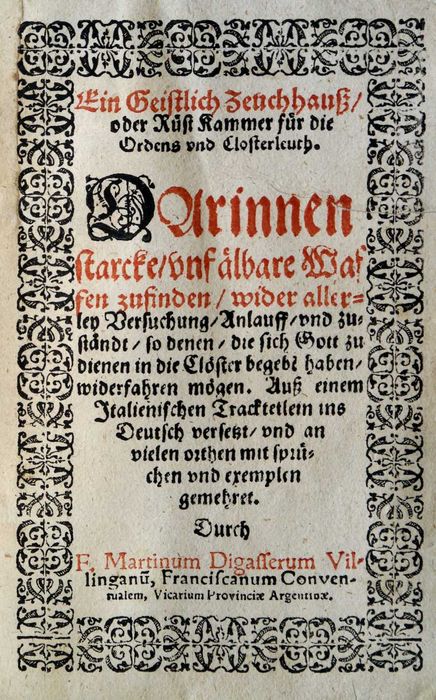 Ein Geistlich Zeuchhauß/
oder Rüst Kammer für die
Ordens vnd Closterleuth.
DArinnen
starcke/ vnfälbare Waf
fen zufinden/ wider aller-
ley Versuchung/ Anlauff/ vnd zu-
ständt/ so denen/ die sich Gott zu
dienen in die Clöster begebē haben/
widerfahren mögen. Auß einem
Italienischen Tracktetlein ins
Deutsch versetzt/ vnd an
vielen orthen mit sprü-
chen vnd exemplen
gemehret.
Durch
F. Martinum Digasserum Vil-
linganū, Franciscanum Conven-
tualem, Vicarium Provinciæ Argentinæ.